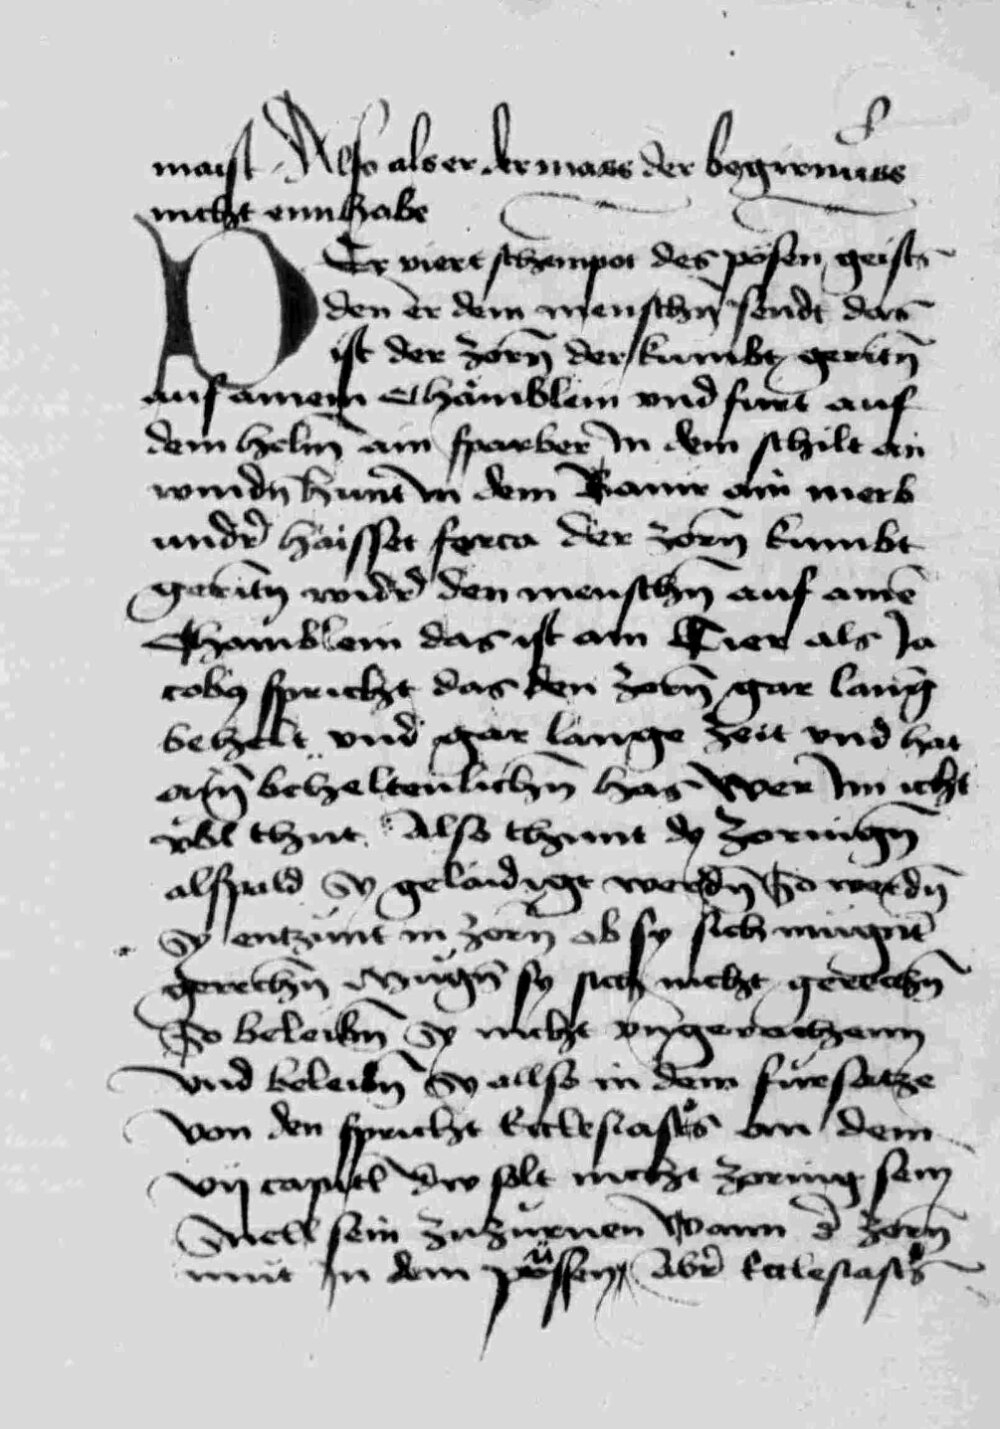 maist Also als er der mass der begirnuss
nicht enn habe
DEr viert schempot des pösen geists
den er dem menschn̄ sendt das
ist der zorn̄ der kumbt geritn̄
auf ainem Chämblein vnd fürt auf
dem helm̄ ain sparber In dem schilt ain
windn̄ hunt in dem Banir ain
undr̄ haisset der zorn̄ kumbt
geritn̄ widr̄ den menschn̄ auf aine
Chämblein das ist ain Tier als Ja
cobus spricht das den zorn̄ gar lang
behelt vnd gar lange zeit vnd hat
ain̄ beheltenlichn̄ has wer Im icht
vbl thut Also thunt dy zornign̄
alspald Sy gelaidigt werdn̄ So werdn̄
Sy entzunt in zorn̄ ob sy sich mugnt
gerechn̄ Mugn̄ sy sich nicht gerechn̄
So beleibn̄ Sy nicht vngerochenn
Vnd beleibn̄ Sy allso in dem fürsatze
Von den spricht Ecclesiastes an dem
vij capitl Dw solt nicht zornig sein
Snell sein zuzürnen Wann d̄ zorn̄
in dem pössen Abr̄ Ecclesiastes